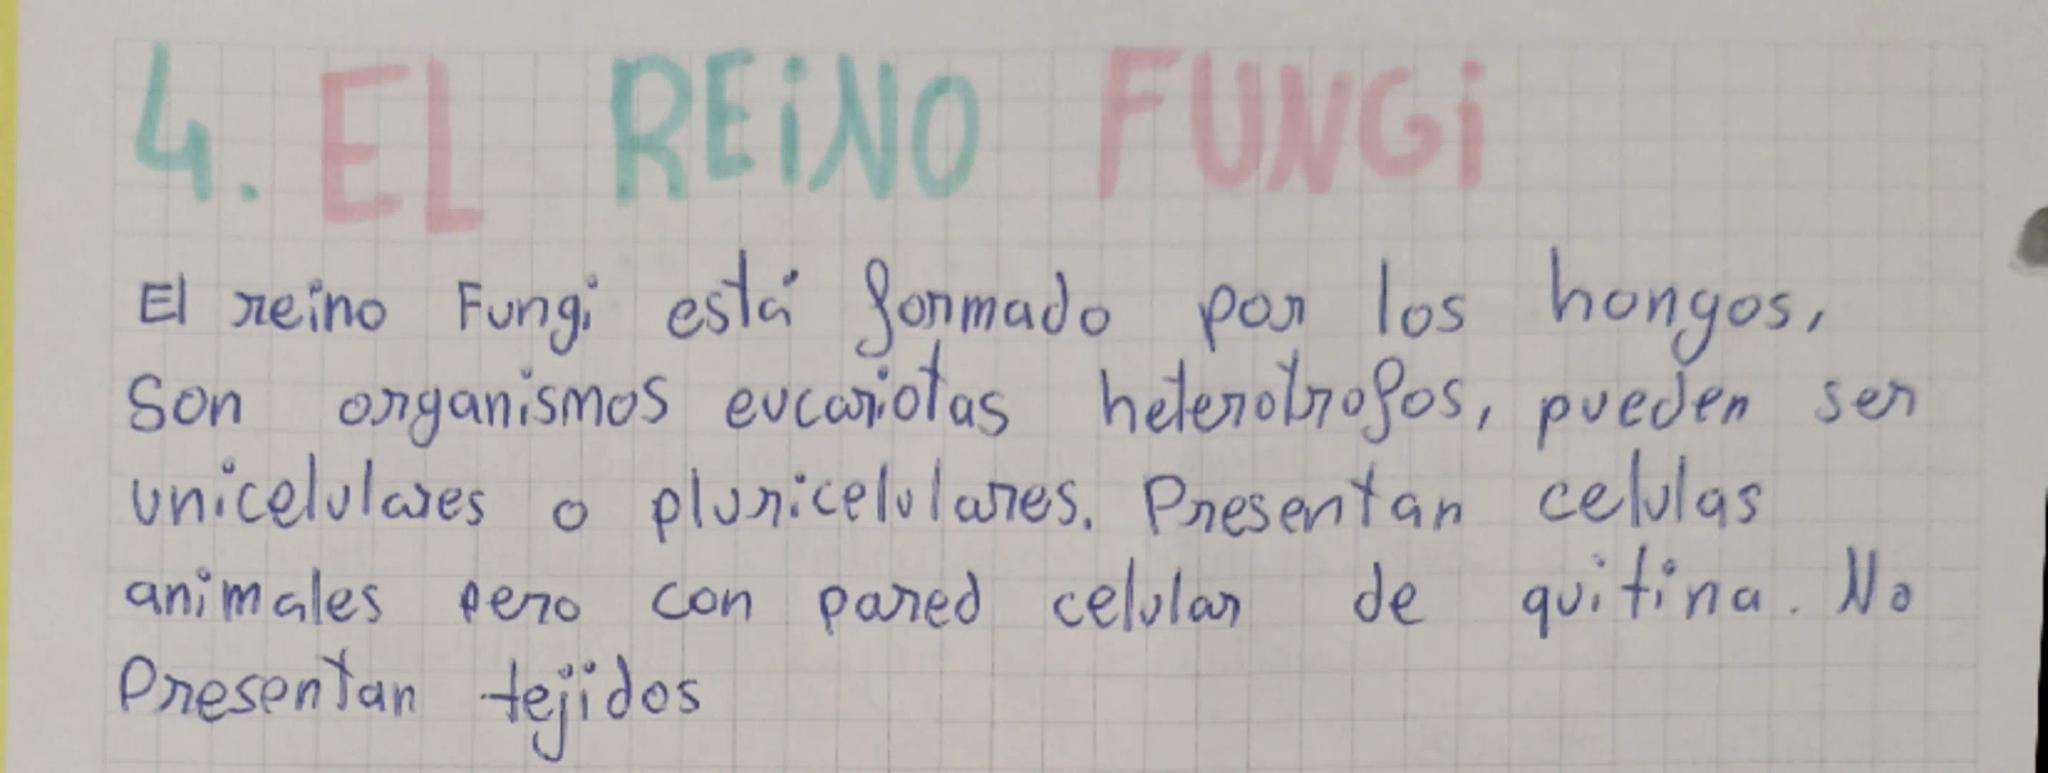 4. EL REINO FUNGI
El reino Fungi está formado por los hongos,
Son organismos eucariotas heterotrofos, pueden ser
unicelulares o pluricelulares. Presentan celulas
animales pero con pared celular de quitina. No
Presentan tejidos